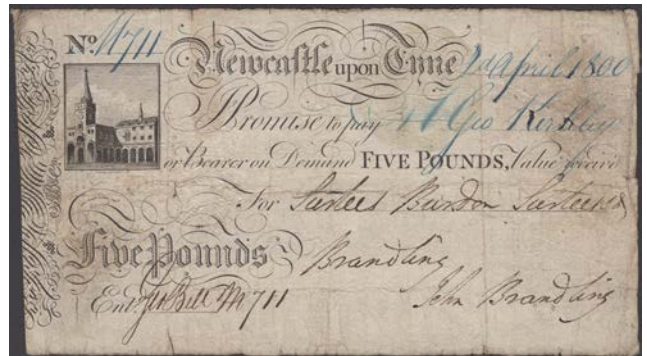 No. M711 Newcastle upon Tyne 2d April 1800
Promise to pay Geo Kirkley
or Bearer on Demand FIVE POUNDS, Value receiv'd
For Surtees Burdon Surtees &
Five Pounds Brandling
Entd. Jn Bell M711 John Brandling